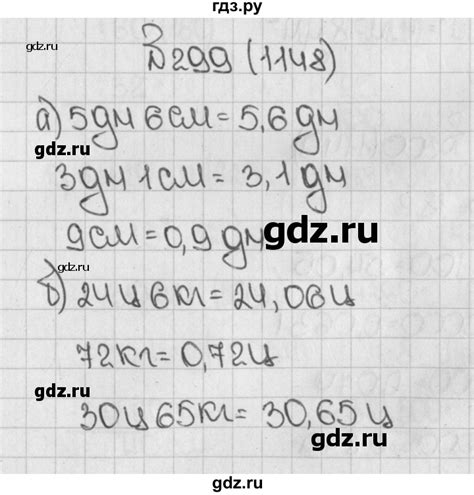 гдз.ру
gdz.ru
№299 (1148)
а) 5дм 6см = 5,6 дм
gdz.ru
3дм 1см = 3,1 дм
gdz.ru
9см = 0,9 дм
gdz.ru
б) 24ц 6кг = 24,06ц
72кг = 0,72ц
gdz.ru
30ц 65кг = 30,65 ц
gdz.ru
gdz.ru